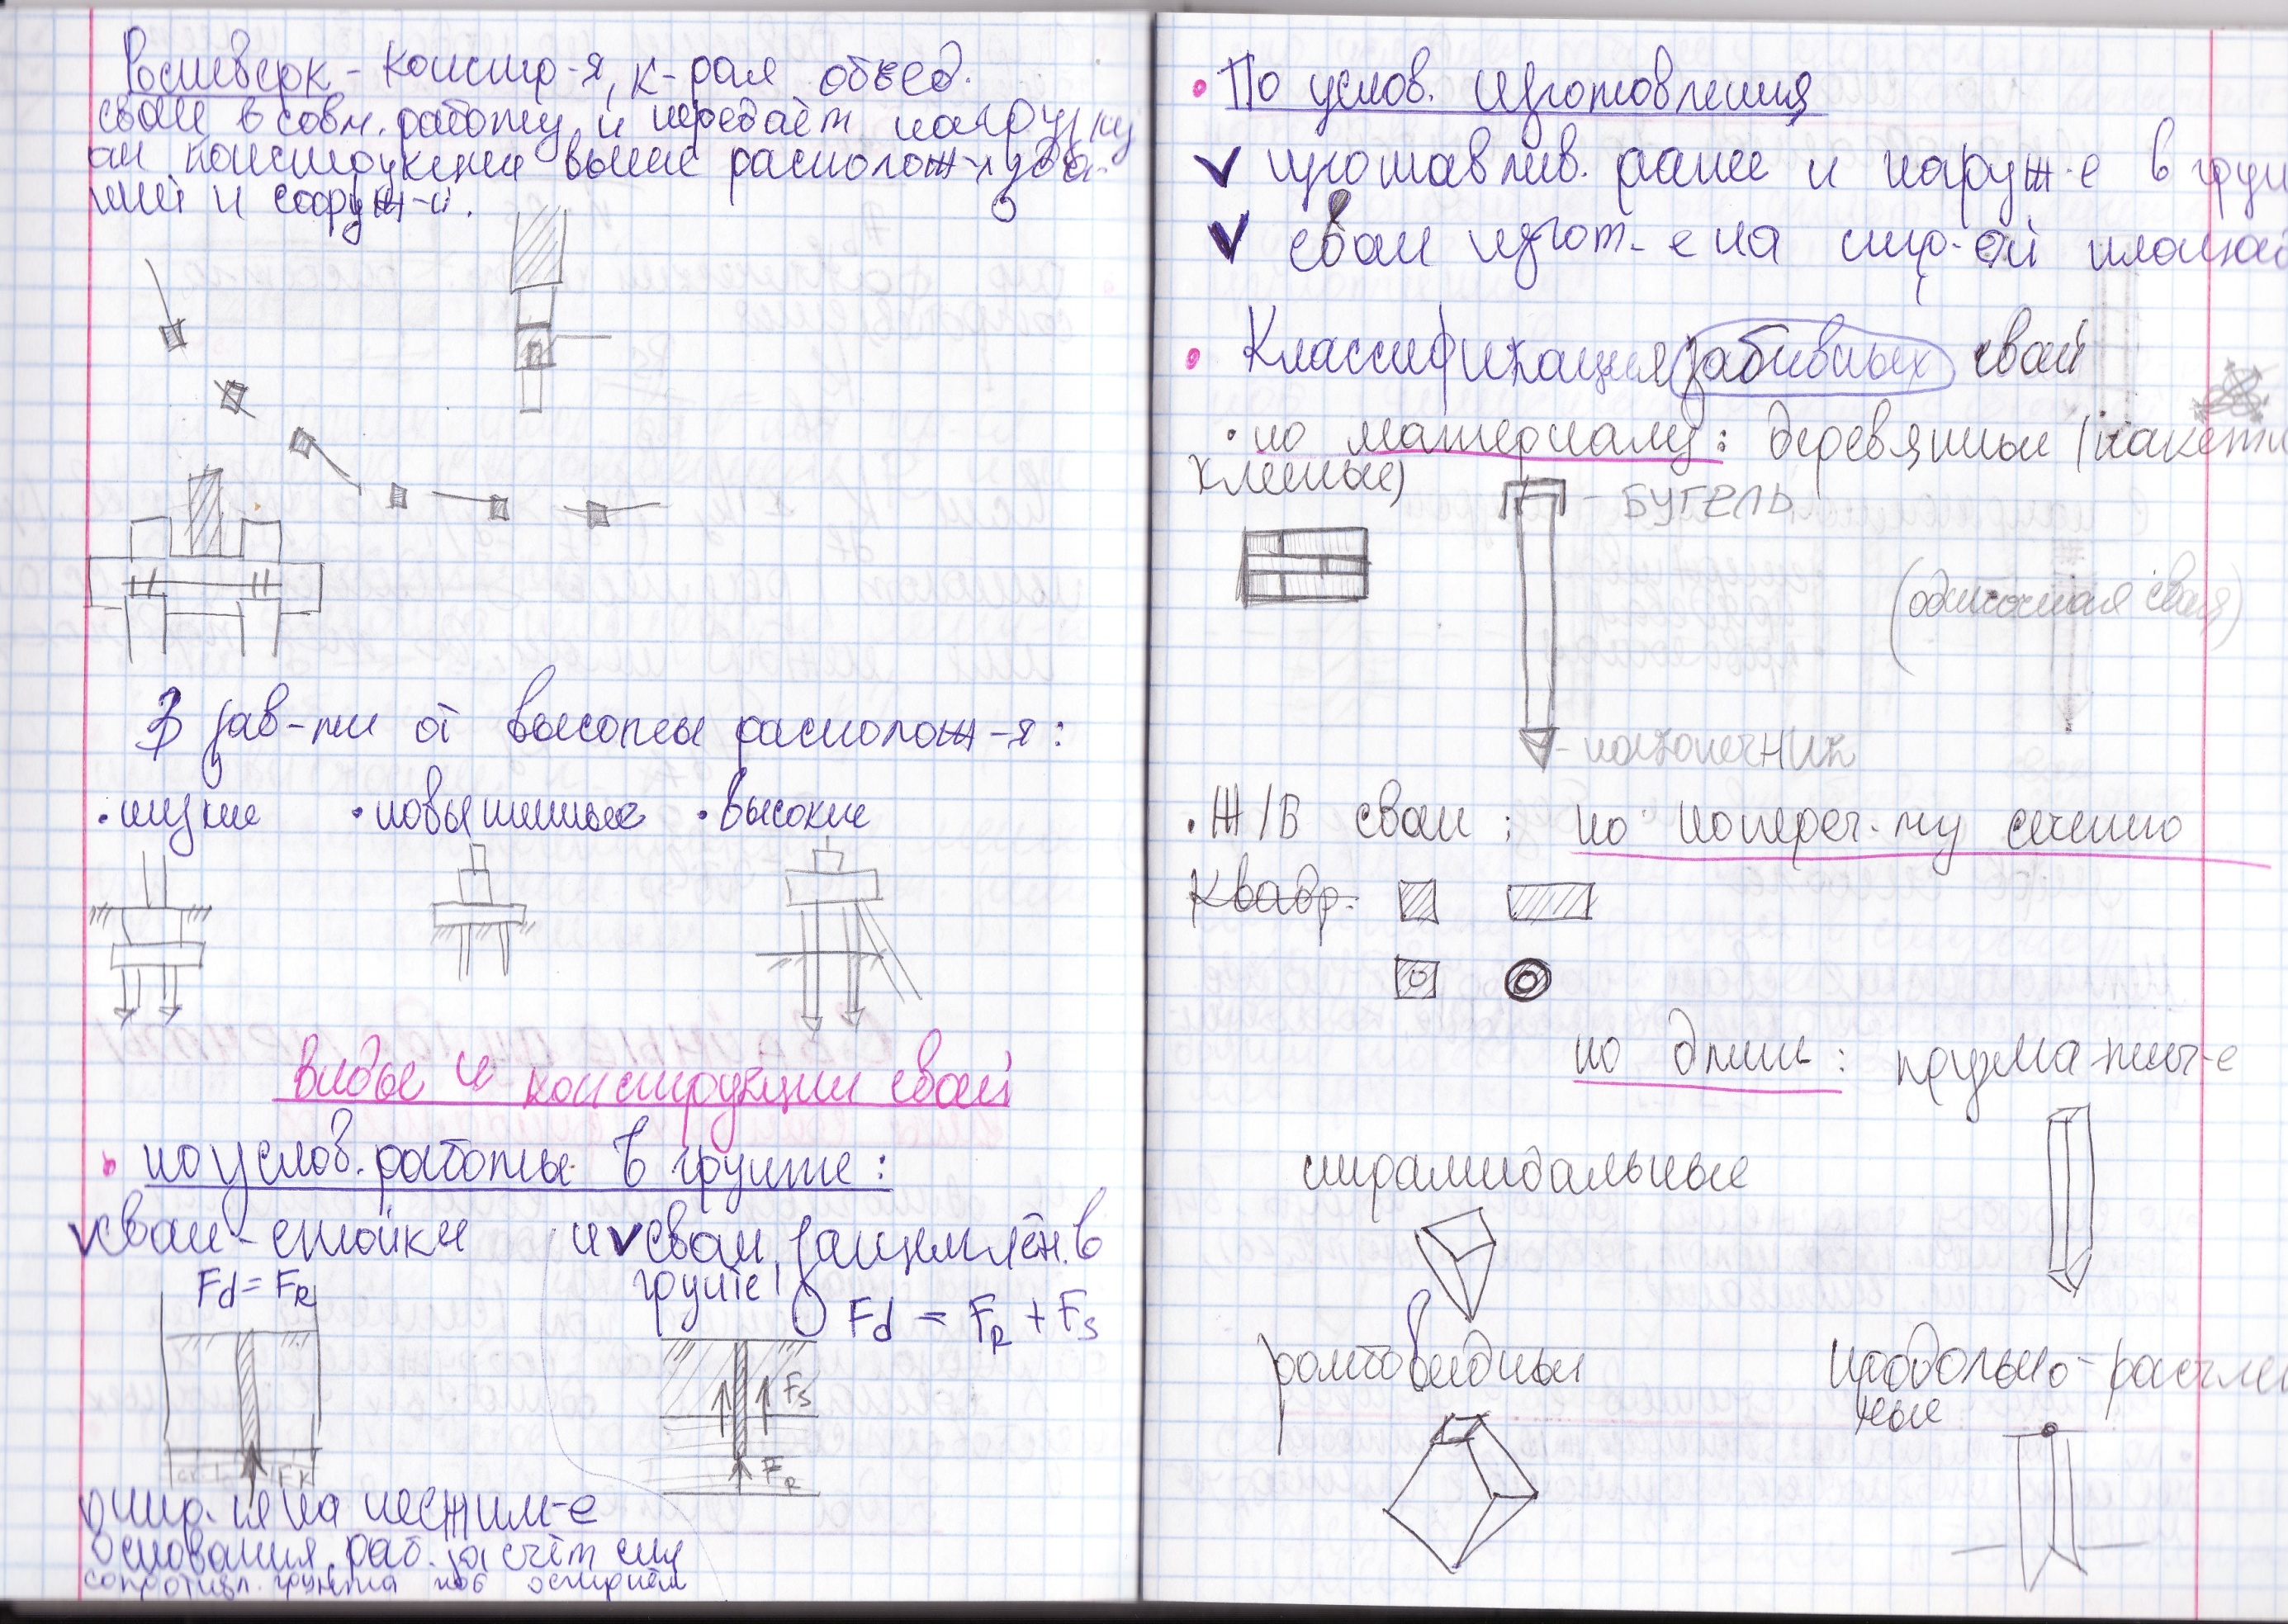 Ростверк - констр-я, к-рая объед.
сваи в совм. работу и передаёт нагрузку
от конструкций выше располож-х зда-
ний и сооруж-й.
В зав-ти от высоты располож-я:
• низкие • повышенные • высокие
Виды и конструкции свай
• по услов. работы в грунте:
✓ сваи-стойки и ✓ сваи, защемлён. в
грунте
Fd = FR
Fd = FR + Fs
Fs
FR
FR
опир-ся на несжим-е
основания, раб. за счёт сил
сопротивл. грунта под остриём
• По услов. изготовления
✓ изготавлив. ранее и погруж-е в грун
✓ сваи изгот-е на стр-ой площад
• Классификация забивных свай
• по материалу: деревянные (пакетн
клееные)
- БУГЕЛЬ
(одиночная свая)
- наконечник
• Ж/Б сваи; по попереч-му сечению
квадр.
по длине: призматич-е
пирамидальные
ромбовидные
продольно-расчле
ные